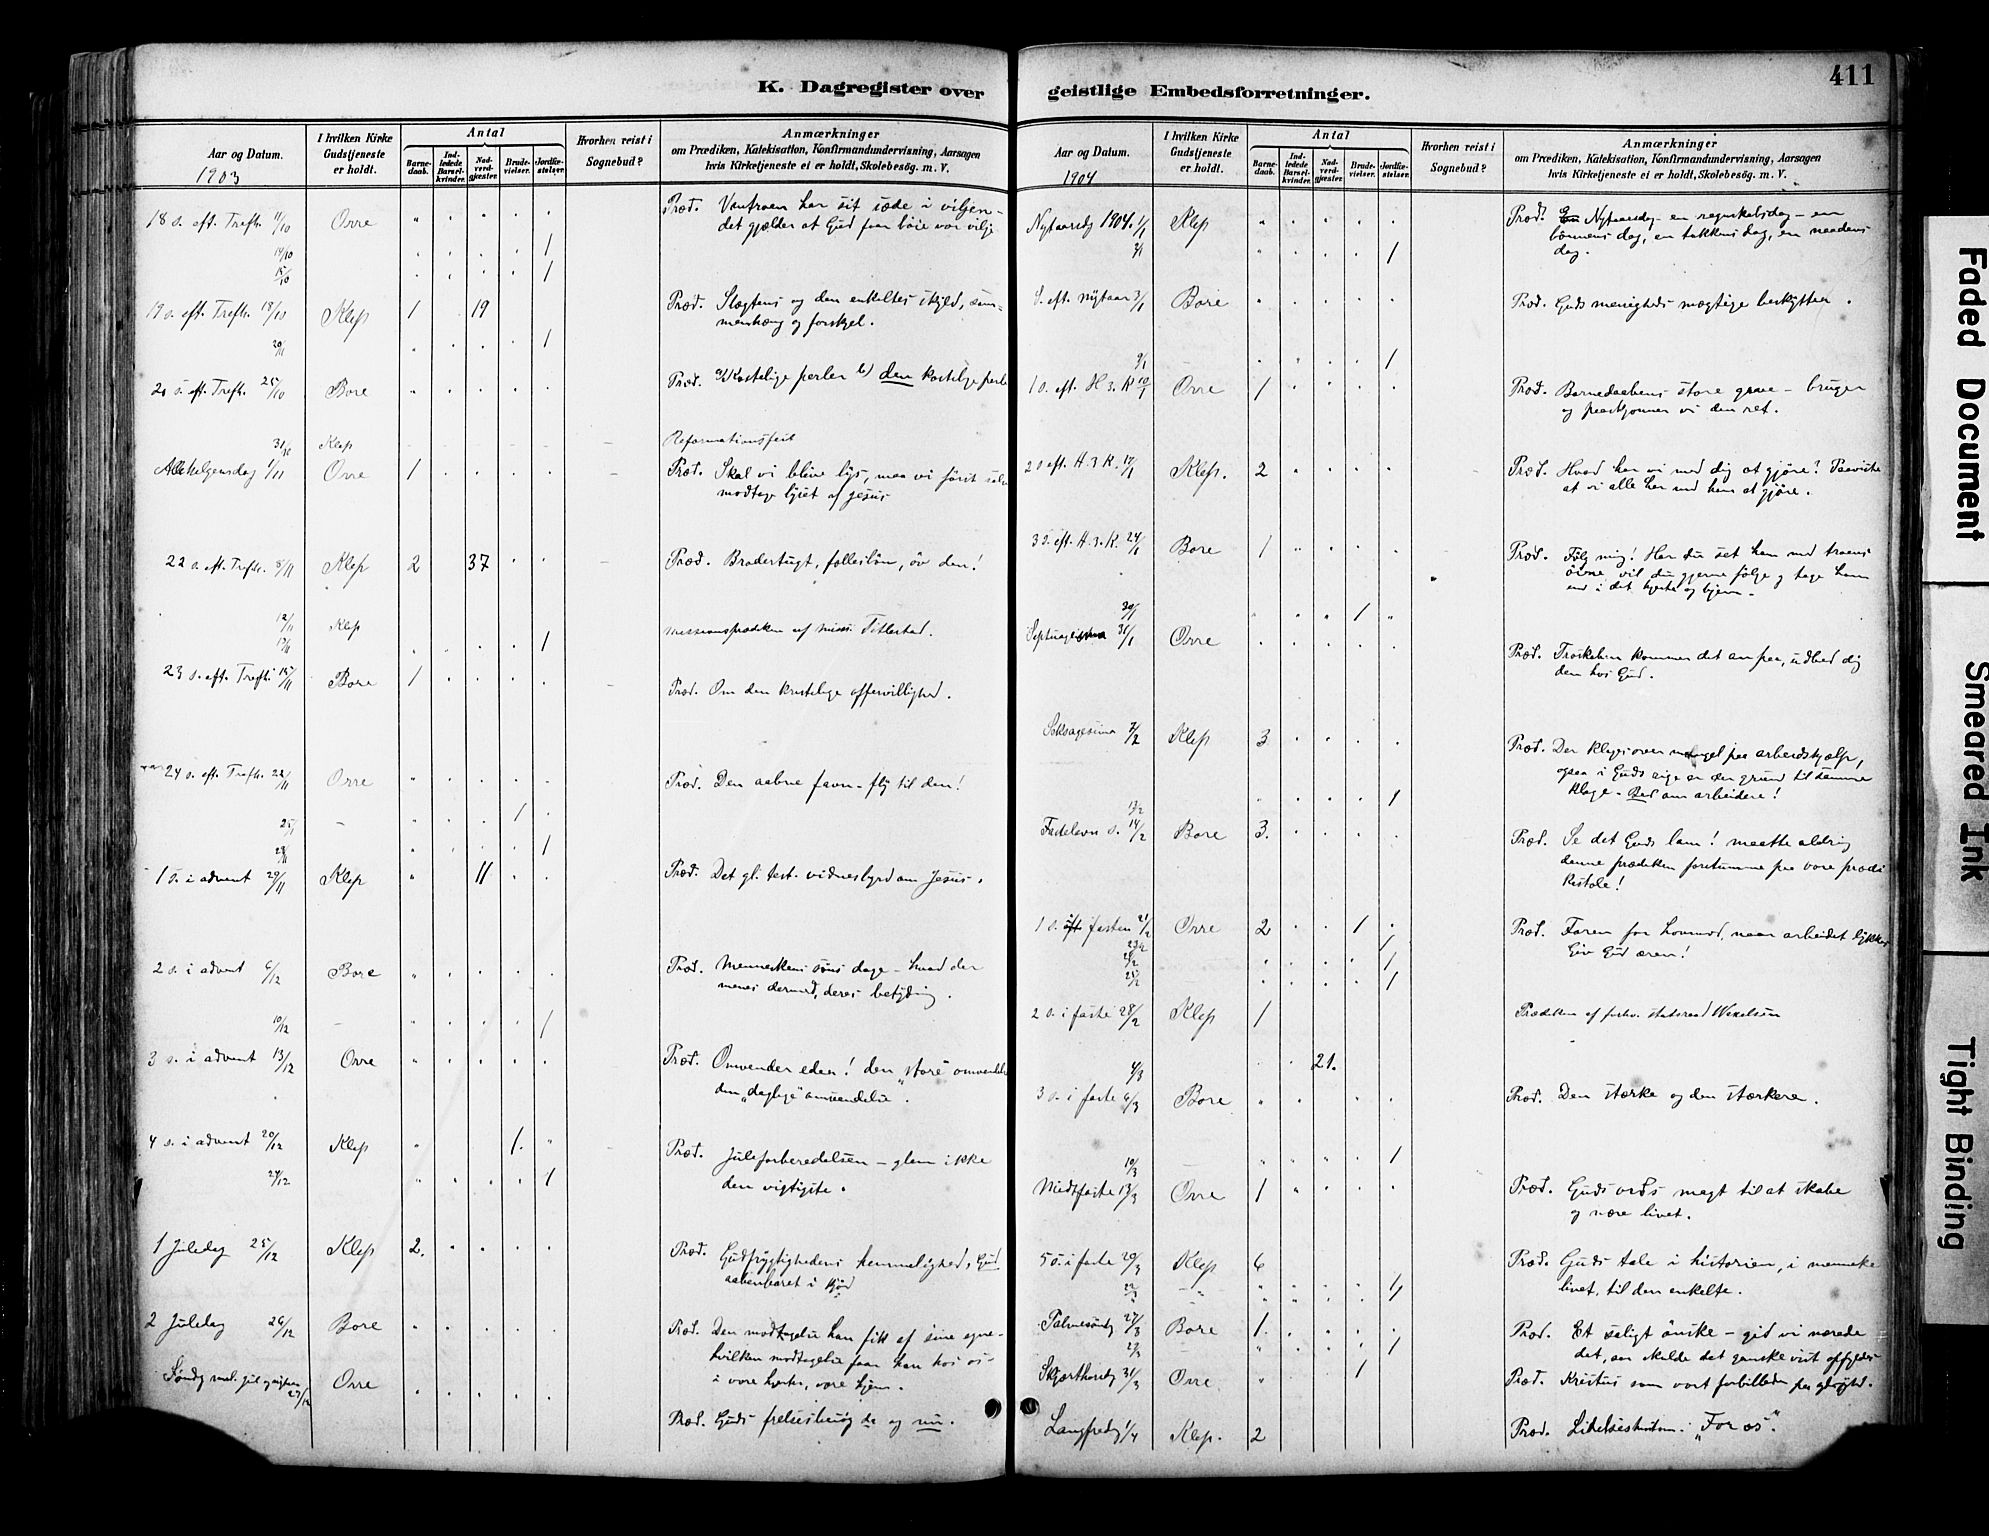 K. Dagregister over
Aar og Datum.
1903
I hvilken Kirke Gudstjeneste er holdt.
Antal
Barnedaab.
Indledede Barselkvinder.
Nadverdgjæster.
Brudevielser.
Jordfæstelser.
Hvorhen reist i Sognebud?
Anmærkninger
om Prædiken, Katekisation, Konfirmandundervisning, Aarsagen
hvis Kirketjeneste ei er holdt, Skolebesøg. m. V.
18 s. eft. Trefh. 11/10 Orre Præd. Vantroen har sit sæde i viljen -
det gjælder at Gud faar böie vor vilje
14/10 1
15/10 1
19 s. eft. Trefh. 18/10 Klep 1 19 Præd. Slægtens og den enkeltes skyld, sam=
menhæng og forskjel.
1
20 s. eft. Trefh. 25/10 Bore Præd. a) Kostelige perler b) den kostelige perle
31/10 Klep Reformationsfest
Allehelgensdag 1/11 Orre 1 Præd. Skal vi blive lys, maa vi först selv
modtage lyset af Jesus
22 s. eft. Trefh. 8/11 Klep 2 37 Præd. Brodertugt, fællesbön, öv den!
12/11 Klep Missionsprædiken af miss. Titlestad.
13/11 1
23 s. eft. Trefh. 15/11 Bore 1 Præd. Om den kristelige offervillighed.
24 s. eft. Trefh. 22/11 Orre Præd. Den aabne favn - fly til den!
25/11 - 1
28/11 1
1 s. i advent 29/11 Klep 11 Præd. Det gl. test. vidnesbyrd om Jesus.
2 s. i advent 6/12 Bore Præd. Menneskens söns dage - hvad der
menes dermed, deres betydning.
10/12 - 1
3 s. i advent 13/12 Orre Præd. Omvender eder! den "store" omvendelse
den "daglige" omvendelse.
4 s. i advent 20/12 Klep 1. Præd. Juleforberedelsen - glem ikke
den vigtigste.
24/12 1
1 Juledag 25/12 Klep 2. Præd. Gudfrygtighedens hemmelighed, Gud
aabenbaret i kjöd
2 Juledag 26/12 Bore Præd. Den modtagelse han fik af sine egne -
hvilken modtagelse faar han hos os -
i vore hjerter, vore hjem.
Söndg mel. jul og nytaar 27/12 Orre
Præd. Guds frelsesbesög da og nu.
geistlige Embedsforretninger.
411
Aar og Datum.
1904
I hvilken Kirke Gudstjeneste er holdt.
Antal
Barnedaab.
Indledede Barselkvinder.
Nadverdgjæster.
Brudevielser.
Jordfæstelser.
Hvorhen reist i Sognebud?
Anmærkninger
om Prædiken, Katekisation, Konfirmandundervisning, Aarsagen
hvis Kirketjeneste ei er holdt, Skolebesøg. m. V.
Nytaarsdg 1904. 1/1 Klep Præd. Nytaarsdag - en regnskabsdag - en
bönnens dag, en takkens dag, en naadens
dag.
1
S. eft. nytaar 3/1 Bore Præd. Guds menigheds mægtige beskytter.
9/1 1
1 s. eft. H. 3. K 10/1 Orre 1 Præd. Barnedaabens store gave - bruger
og paaskjönner vi den ret.
2 s eft. H. 3. K. 17/1 Klep. 2 Præd. Hvad har vi med dig at gjöre? Paavise
at vi alle har med ham at gjöre.
3 s. eft. H. 3. K. 24/1 Bore 1 Præd. Fölg mig! Har du set ham med troens
öine vil du gjerne fölge og tage ham
ind i det hjerte og hjem.
30/1 1
Septuagesima 31/1 Orre Præd. Troskaben kommer det an paa, udbed dig
den hos Gud.
Seksagesima 7/2 Klep 3 Præd. Der klages over mangel paa arbeidshjælp,
ogsaa i Guds rige er der grund til samme
klage. - Bed om arbeidere!
13/2 1
Fastelavn s. 14/2 Bore 3. Præd. Se det Guds lam! maatte aldrig
denne prædiken forstumme paa vore prædi
kestole!
1 s. i fasten 21/2 Orre 2 1 Præd. Faren for hovmod, naar arbeidet lykkes
Giv Gud æren!
23/2 1
1
25/2 1
2 s. i faste 28/2 Klep 1 Prædiken af forhv. statsraad Wexelsen
4/3 21.
3 s. i faste 6/3 Bore Præd. Den stærke og den stærkere.
10/3 1
Midtfaste 13/3 Orre 1 Præd. Guds ords magt til at skabe
og nære livet.
5 s. i faste 20/3 Klep 6 Præd. Guds tale i historien, i menneske
livet, til den enkelte.
22/3 - " -
Palmesöndg 27/3 Bore 1. Præd. Et saligt önske - gid vi nærede
det, saa skulde det ganske vist opfyldes
1
Skjærthorsdg 31/3 Orre 1 Præd. Kristus som vort forbillede paa ydmyghed.
Langfredg 1/4 Klep. 2 Præd. Lidelseshistorien: "For os".
Faded Document
Smeared Ink
Tight Binding